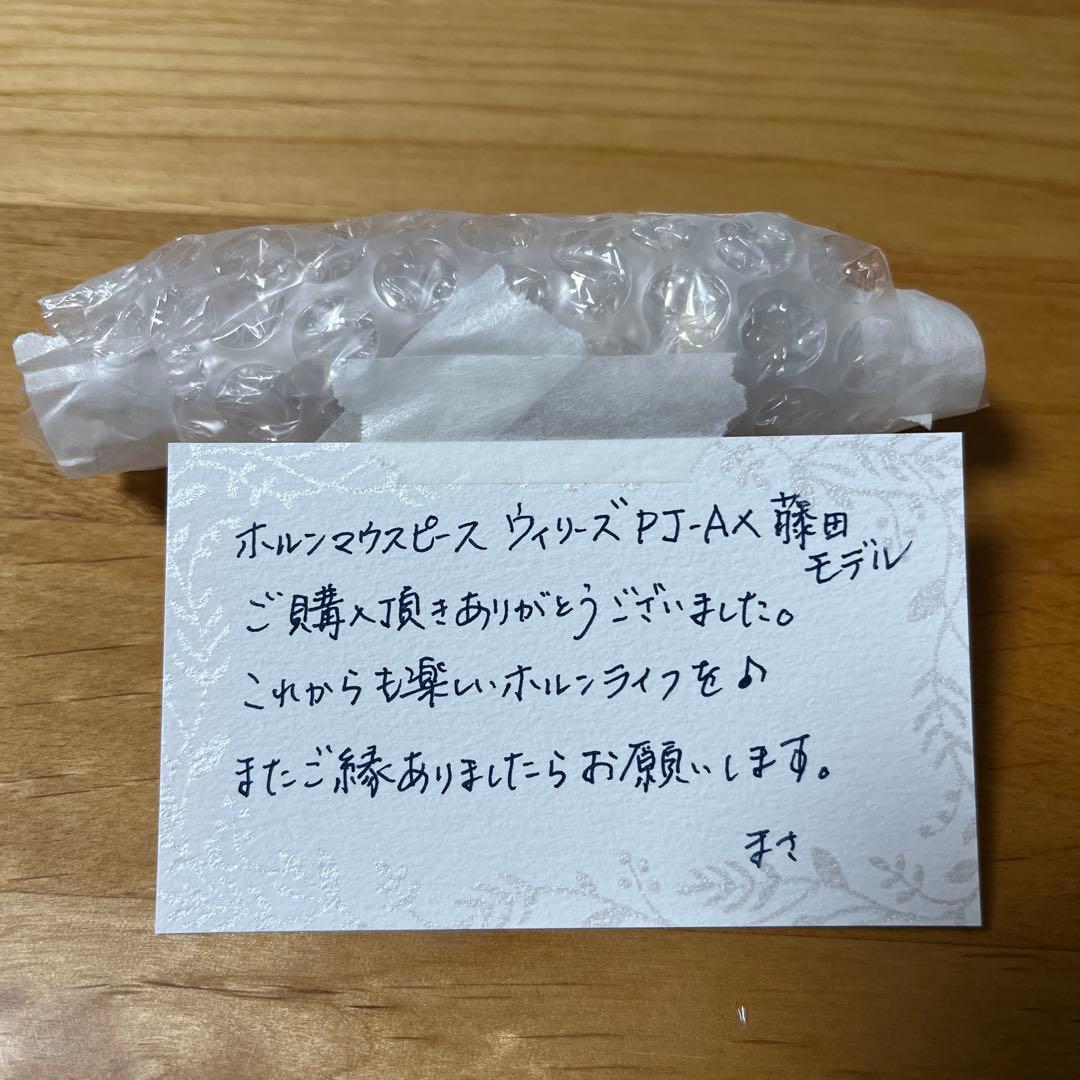 ホルンマウスピース ウィリーズPJ-AX藤田
モデル
ご購入頂きありがとうございました。
これからも楽しいホルンライフを♪
またご縁ありましたらお願いします。
まさ